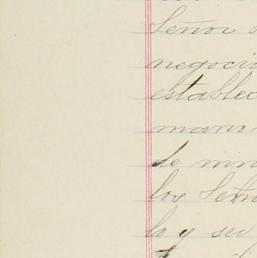 Señor
negocio
establec
mano
de nin
los Señ
lo y su